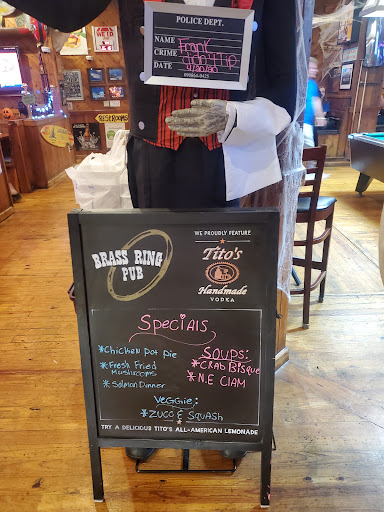 WE ID
RESTROOMS
POLICE DEPT.
NAME Frank
CRIME
DATE
099866-0425
BRASS RING
PUB
WE PROUDLY FEATURE
Tito's
Handmade
VODKA
Specials
*Chicken Pot Pie
*Fresh Fried
Mushrooms
*Salmon Dinner
Soups:
*CRAB BISque
*N.E CLAM
Veggie:
*ZUCC & Squash
TRY A DELICIOUS TITO'S ALL-AMERICAN LEMONADE